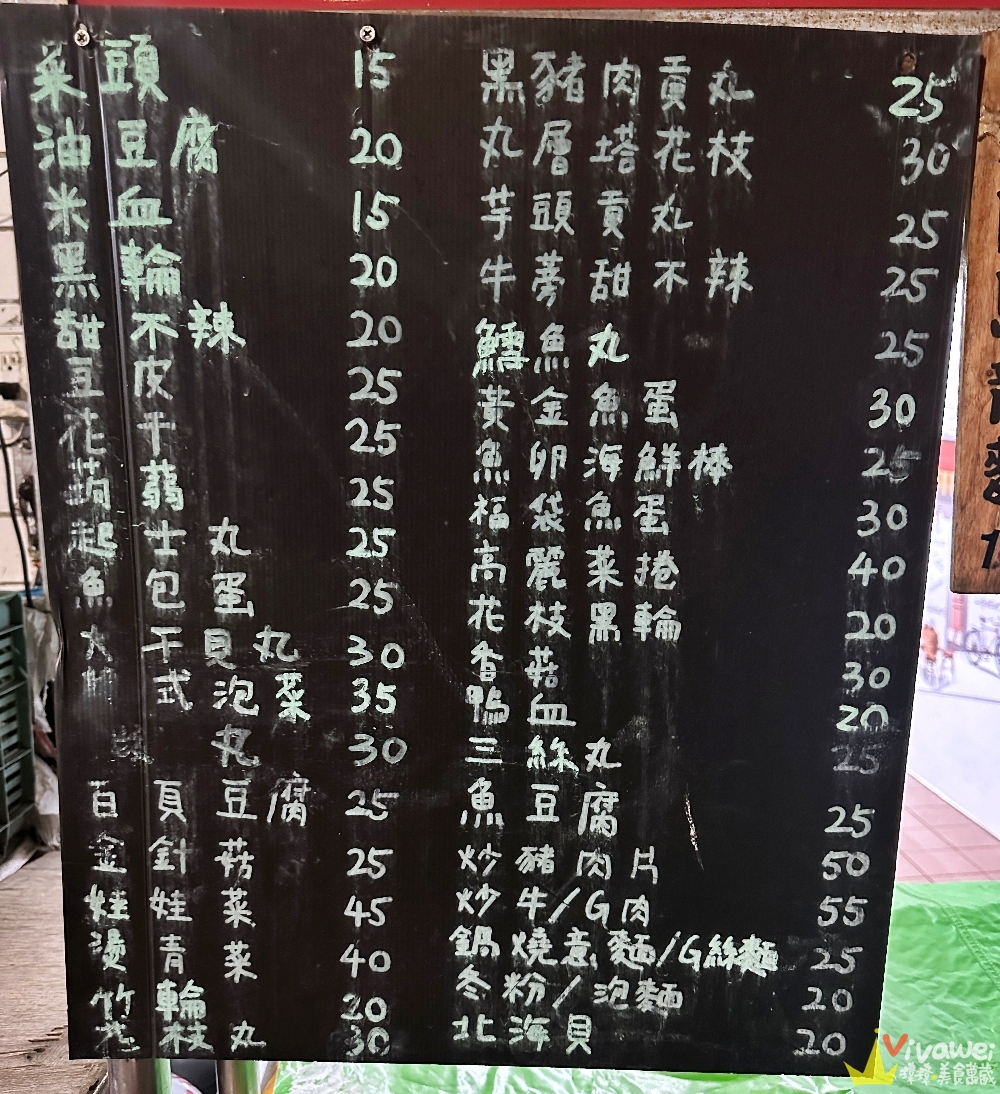 菜頭 15
油豆腐 20
米血 15
黑輪 20
甜不辣 20
豆皮 25
花干 25
蒟蒻 25
起士丸 25
魚包蛋 25
干貝丸 30
式泡菜 35
丸 30
百頁豆腐 25
金針菇 25
娃娃菜 45
燙青菜 40
竹輪 20
花枝丸 30
黑豬肉貢丸 25
九層塔花枝丸 30
芋頭貢丸 25
牛蒡甜不辣 25
鱈魚丸 25
黃金魚蛋 30
魚卵海鮮棒 25
福袋魚蛋 30
高麗菜捲 40
花枝黑輪 20
香菇 30
鴨血 20
三絲丸 25
魚豆腐 25
炒豬肉片 50
炒牛/G肉 55
鍋燒意麵/G絲麵 25
冬粉/泡麵 20
北海貝 20
Vivawei